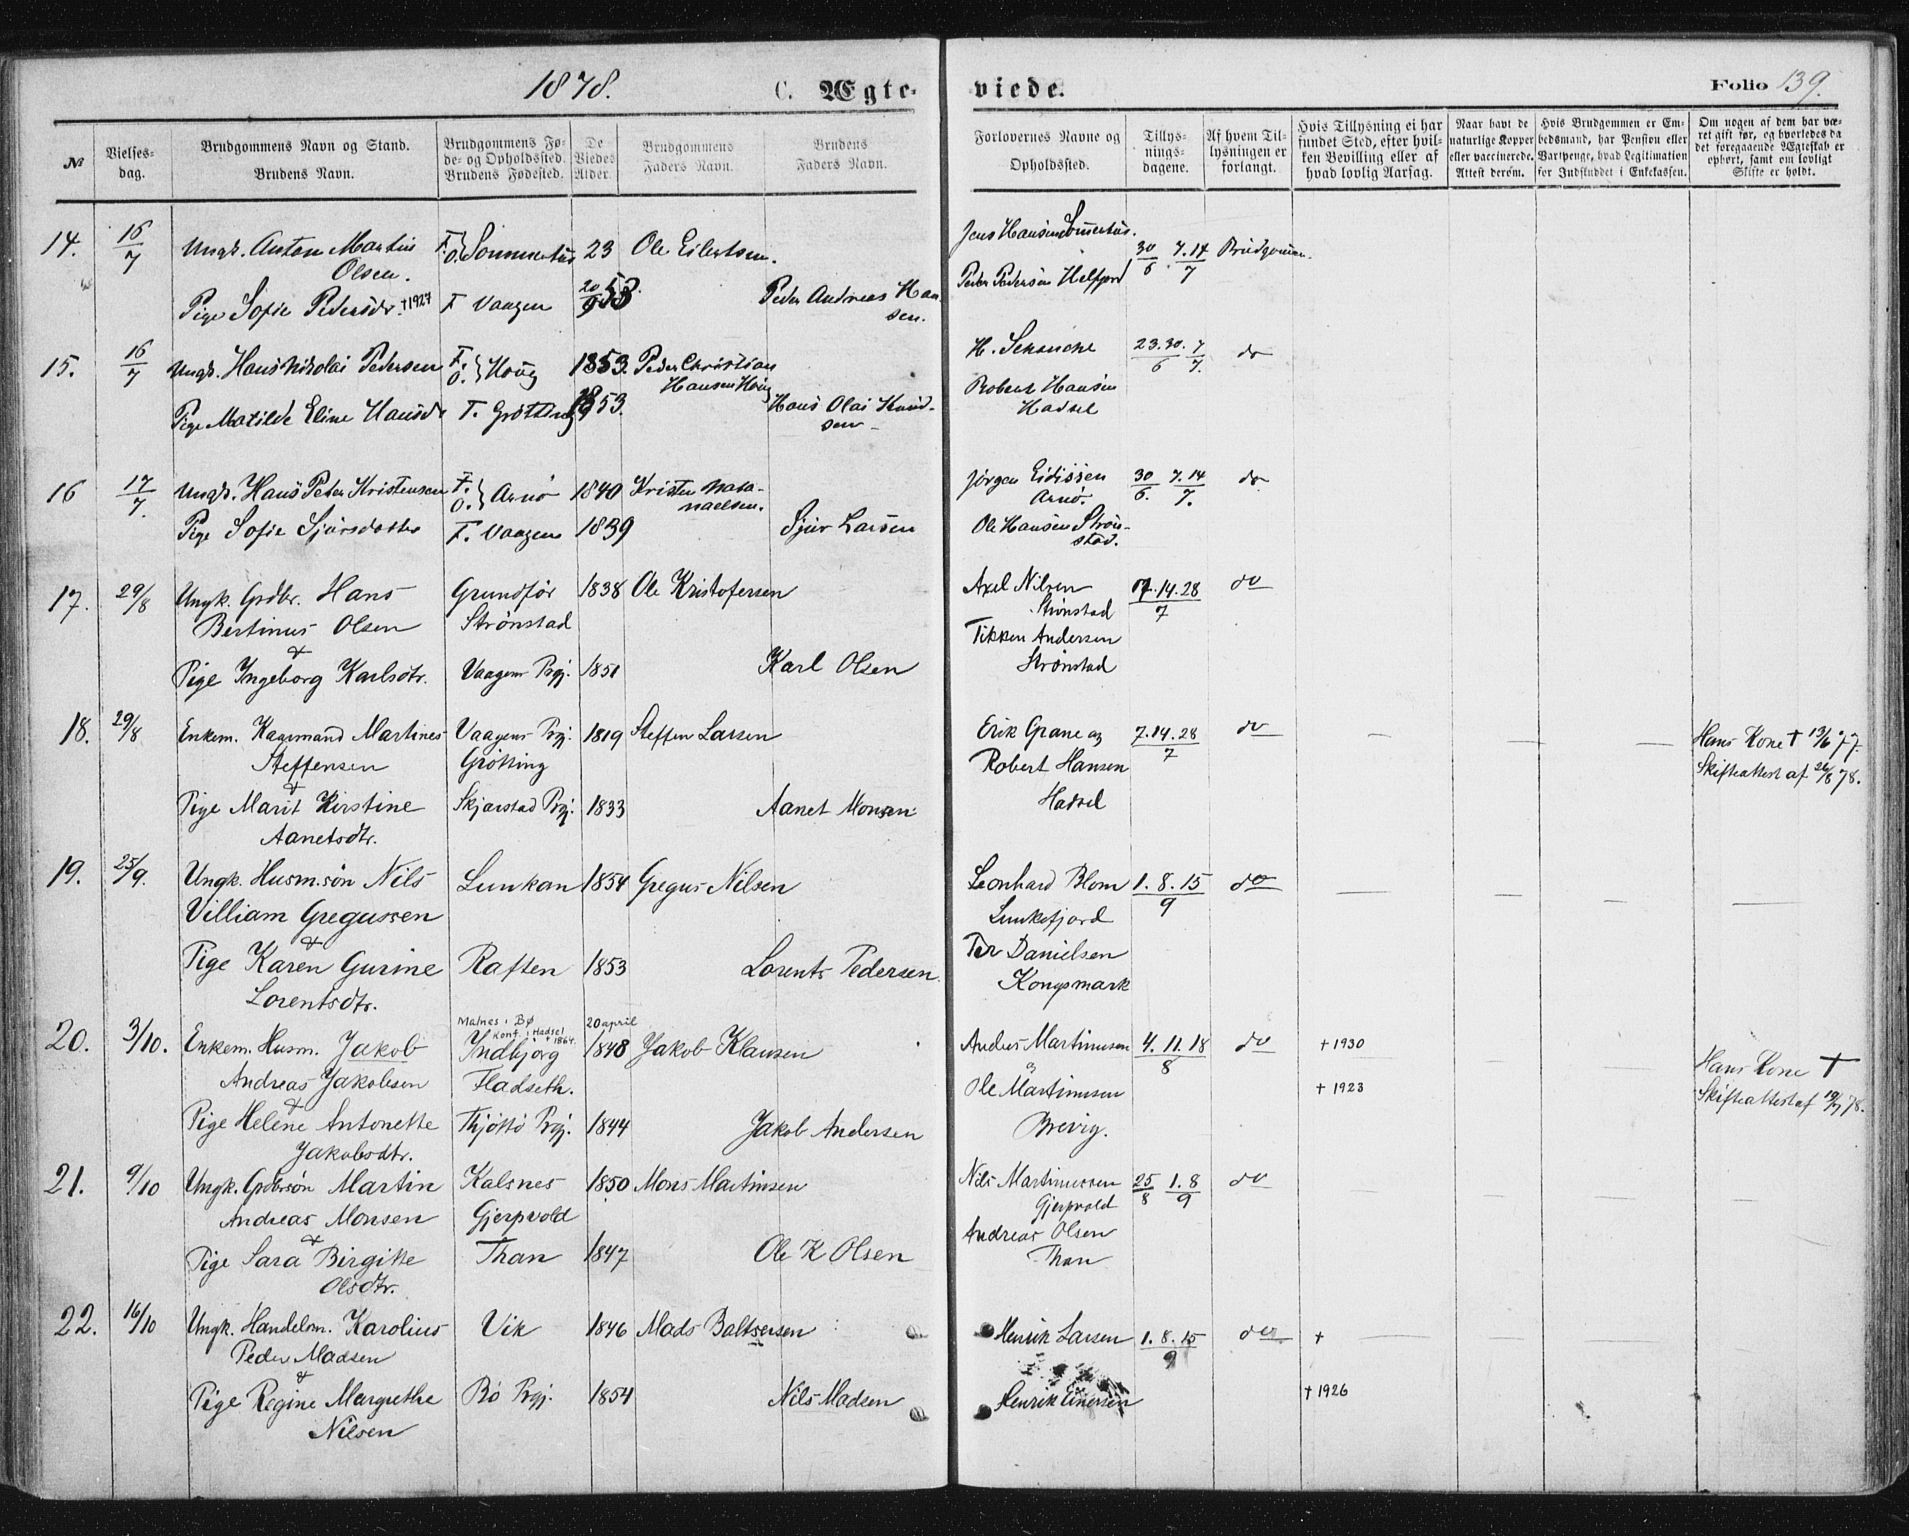 1878.
C. Ægte-
viede.
Folio 139.
№
Vielses-
dag.
Brudgommens Navn og Stand.
Brudens Navn.
Brudgommens Fø-
de- og Opholdssted.
Brudens Fødested.
De
Viedes
Alder.
Brudgommens
Faders Navn.
Brudens
Faders Navn.
Forlovernes Navne og
Opholdssted.
Tillys-
nings-
dagene.
Af hvem Til-
lysningen er
forlangt.
Hvis Tillysning ei har
fundet Sted, efter hvil-
ken Bevilling eller af
hvad lovlig Aarsag.
Naar havt de
naturlige Kopper
eller vaccinerede.
Attest derom.
Hvis Brudgommen er Em-
bedsmand, har Pension eller
Vartpenge, hvad Legitimation
for Indskuddet i Enkekassen.
Om nogen af dem har væ-
ret gift før, og hvorledes da
det foregaaende Ægteskab er
ophørt, samt om lovligt
Skifte er holdt.
14. 16/7 Ungk. Anton Martin F. O. 23 Ole Eilertsen. Jens Hansen 30/6 7.14/7 Brudgommen.
Olsen.
Pige Sofie Pedersdr. †1927 F Vaagen 20/9 53 Peder Andreas Han-
sen.
Peder Pedersen Helfjord
15. 16/7 Ungk. Hans Nikolai Pedersen F. O. 1853. Peder Christian H. 23.30./6 7/7. do
Hansen
Pige Matilde Eline Hansdr F. Grötting 1853. Hans Olai Knud-
sen
Robert Hansen
Hadsel
16 17/7. Ungk. Hans Peter Kristensen F. O. Arnö 1840 Kristen Nata- Jörgen Eidissen 30/6. 7.14/7. do
naelsen. Arnö.
Pige Sofie Sjursdatter F. Vaagen 1839 Sjur Larsen Ole Hansen Strön-
stad.
17. 29/8 Ungk. Grdbr. Hans Grundför 1838 Ole Kristofersen Axel Nilsen 7.14.28/7 do
Bertinus Olsen Strönstad Strönstad
& Tikken Andersen
Pige Ingeborg Karlsdtr. Vaagens Prgj. 1851 Karl Olsen Strönstad
18. 29/8 Enkem. Kaarmand Martines Vaagens Prgj. 1819 Steffen Larsen Erik Grane og 7.14.28/7 do — — — Hans Kone † 13/6 77.
Steffensen Grötting Robert Hansen Skifteattest af 26/8 78.
&
Pige Marit Kirstine Skjærstad Prgj. 1833 Aanet Monsen Hadsel
Aanetsdtr.
19. 25/9. Ungk. Husm.sön Nils Lunkan 1854 Gregus Nilsen Leonhard Blom 1.8.15/9 do — — — —
Villiam Gregussen Lunkefjord
&
Pige Karen Gurine Raften 1853 Lorents Pedersen Per Danielsen
Lorentsdtr. Kongsmark
Malnes i BØ
Konf. i Hadsel 1864.
20 april
20. 3/10. Enkem. Husm. Jakob Indbjörg 1848 Jakob Klausen Anders Martinussen 4.11.18/8 do † 1930 — — Hans Kone †
Andreas Jakobsen Fladseth. & Ole Martinussen † 1923 Skifteattest af 19/7 78.
&
Pige Helene Antonette Thjöttö Prgj. 1844 Jakob Andersen Brevig.
Jakobsdtr.
21. 9/10 Ungk. Grdbrsön Martin Kalsnes 1850 Mons Martinsen Nils Martinussen 25/8 1.8/9 do — — — —
Andreas Monsen Gjerpvold Gjerpvold
& Andreas Olsen
Pige Sara Birgitte Than 1847 Ole K Olsen Than
Olsdtr.
22. 16/10 Ungk. Handelsm. Karolius Vik 1846 Mads Baltsersen Henrik Larsen 1.8.15/9 do † — — —
Peder Madsen
&
Pige Regine Margrethe Bö Prgj. 1854 Nils Madsen Henrik Einersen † 1926
Nilsen